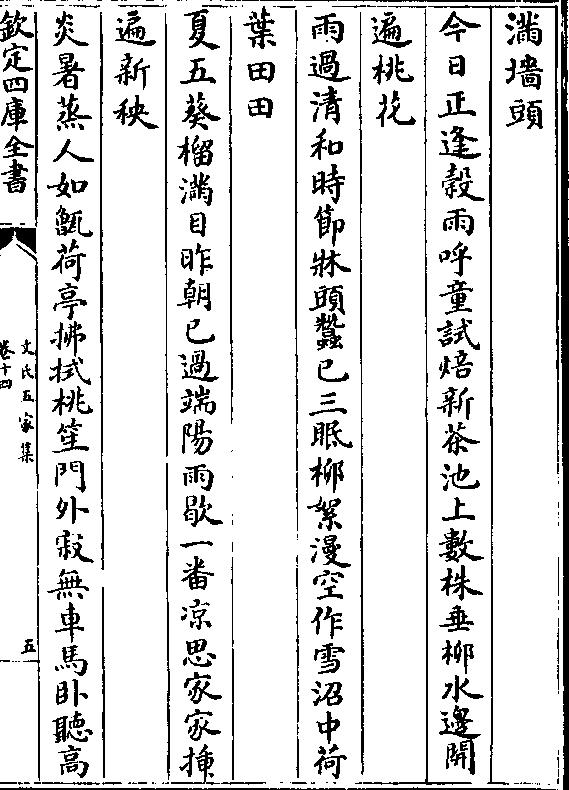 滿墻頭
今日正逢穀雨呼童試焙新茶池上數株垂柳水邊開
遍桃花
雨過清和時節牀頭蠶已三眠柳絮漫空作雪沼中荷
葉田田
夏五葵榴滿目昨朝已過端陽雨歇一番凉思家家揷
遍新秧
炎暑蒸人如甑荷亭拂拭桃笙門外寂無車馬卧聽高
欽定四庫全書
文氏五家集
卷十四
五